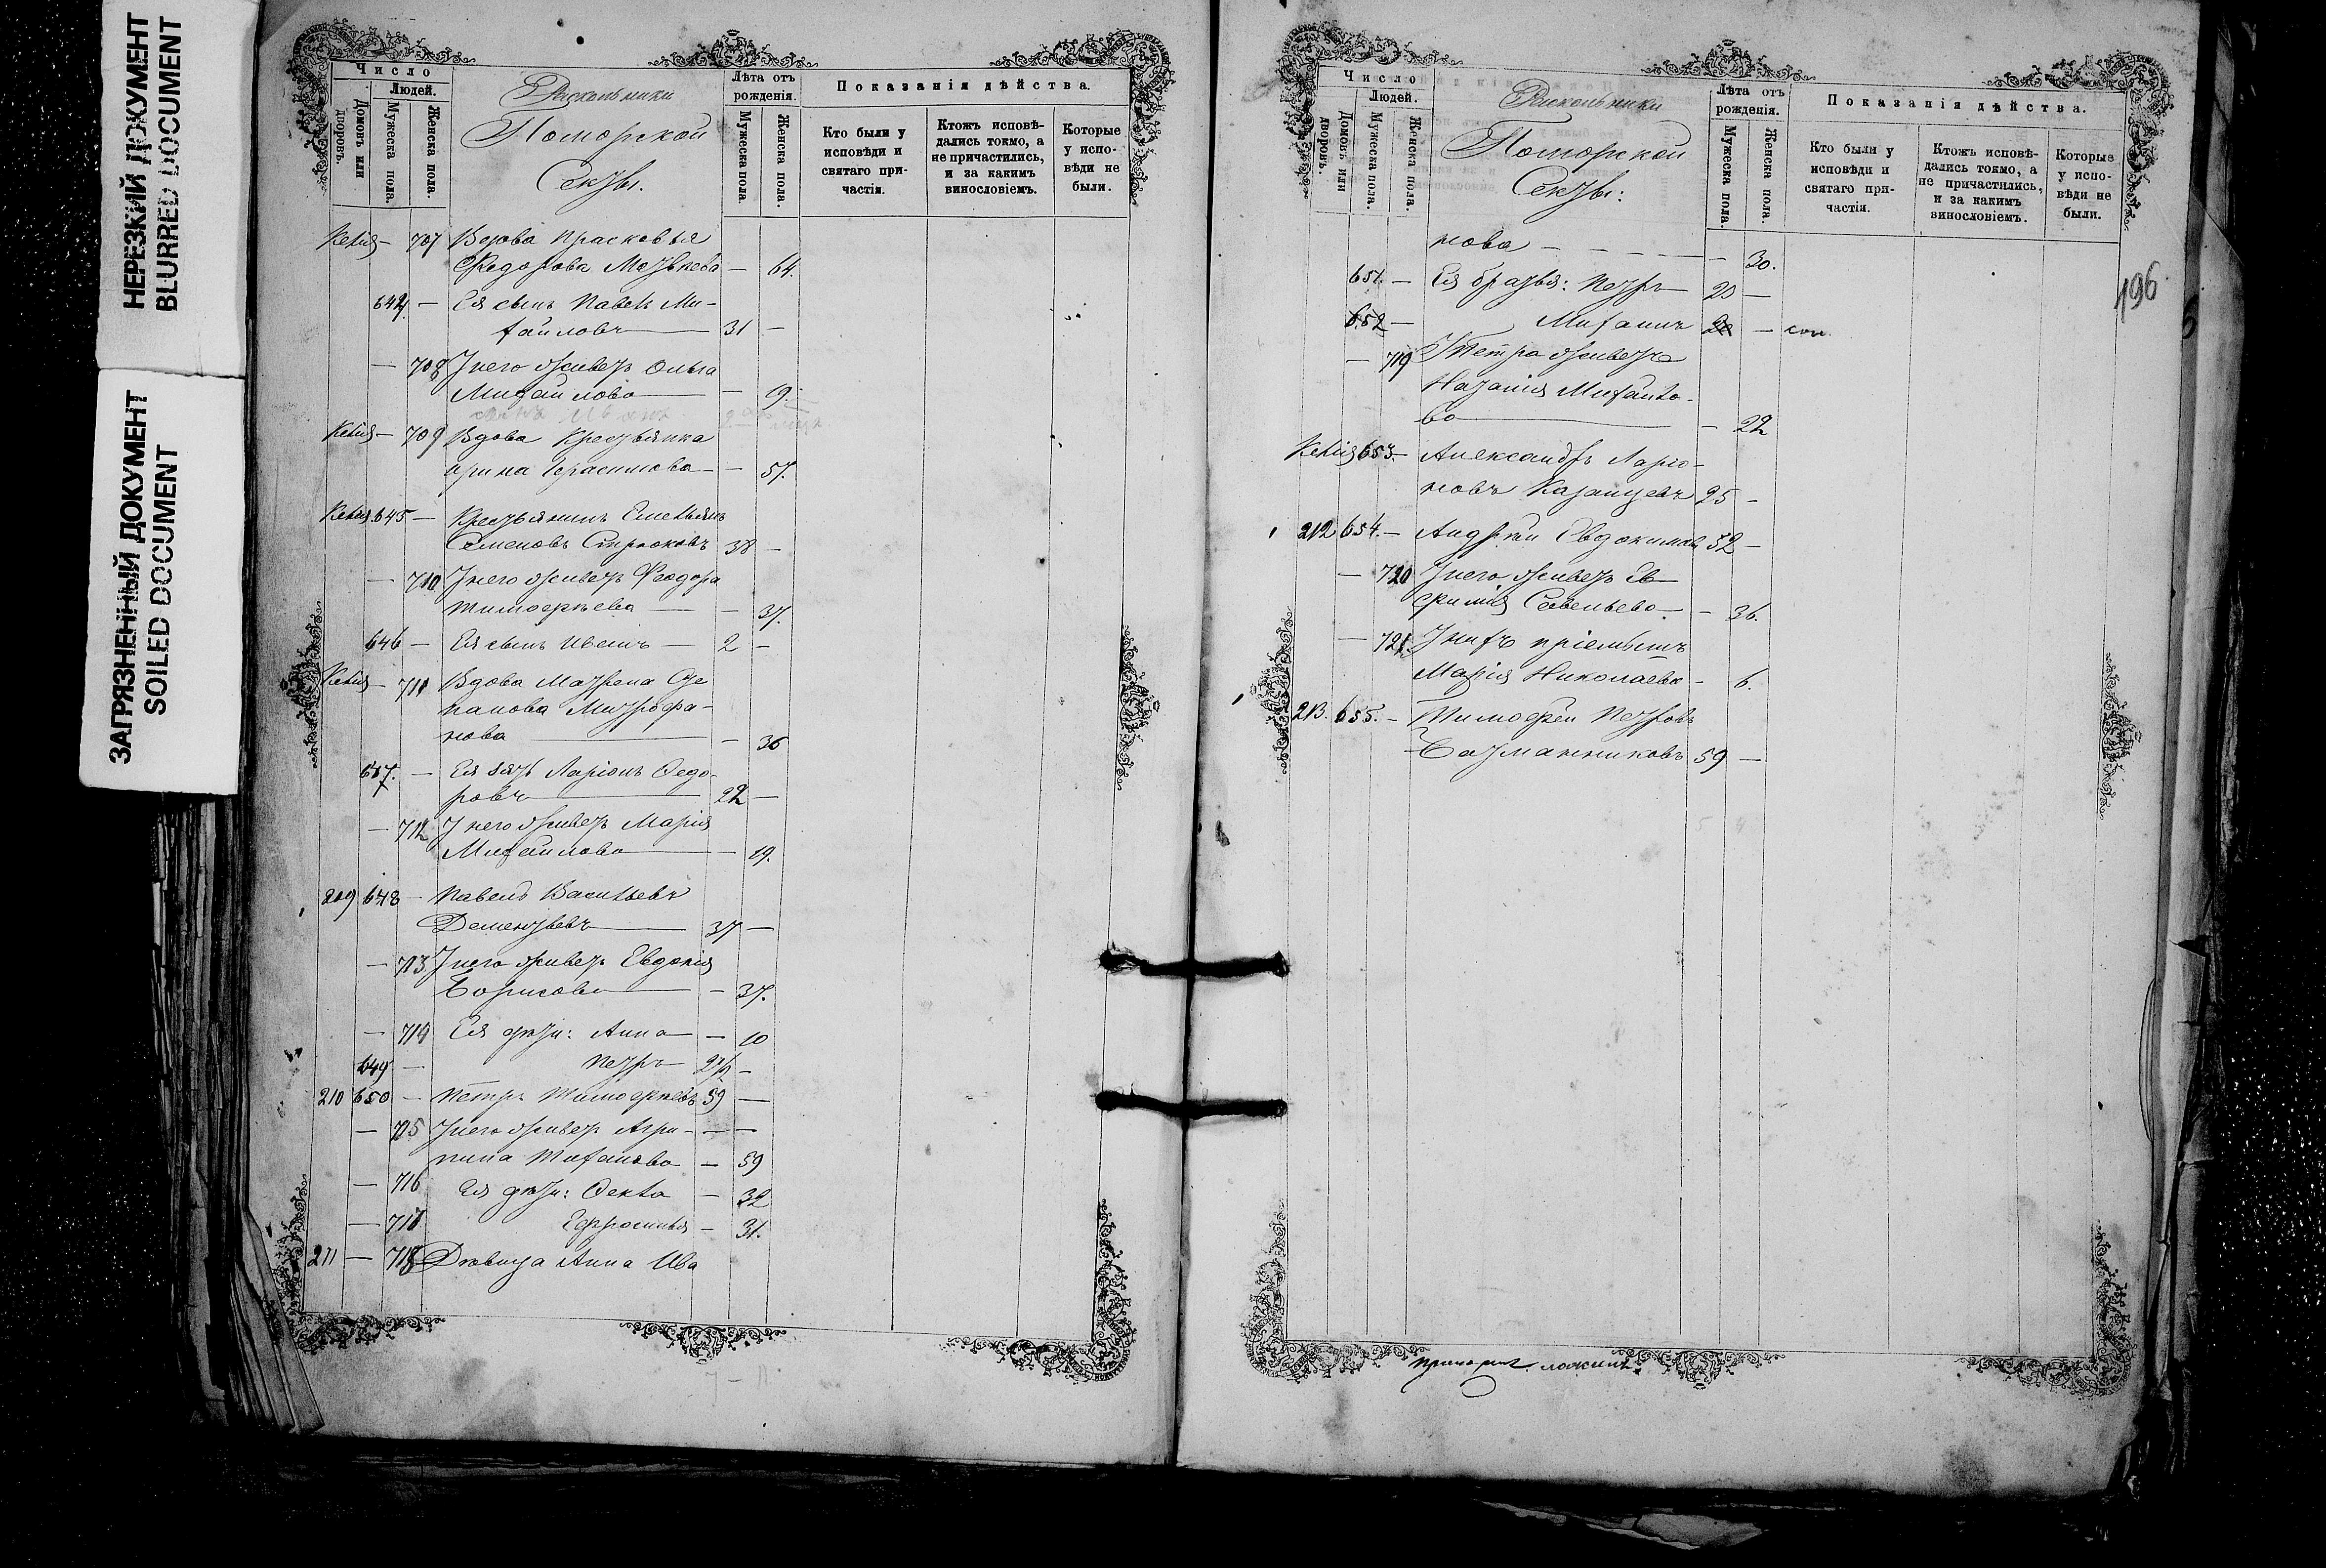 НЕРЕЗКИЙ ДОКУМЕНТ
BLURRED DOCUMENT
ЗАГРЯЗНЕННЫЙ ДОКУМЕНТ
SOILED DOCUMENT
Число
Людей.
Домовъ или дворовъ.
Мужеска пола.
Женска пола.
Раскольники
Поморской
Секты.
Лѣта отъ рожденія.
Мужеска пола.
Женска пола.
Показанія дѣйства.
Кто были у исповѣди и святаго причастія.
Ктожъ исповѣдались токмо, а не причастились, и за какимъ винословіемъ.
Которые у исповѣди не были.
Келія — 707 Вдова Прасковья
Федорова — 64.
644 — Ея сынъ Павелъ Ми-
хаиловъ 31 —
— 708 У него жинетъ Ольга
Михаилова — 19.
Келія — 709 Вдова Крестьянка
Ирина Герасимова — 57.
Келія 645 — Крестьянинъ Емельянъ
Семеновъ 38 —
— 710 У него Феодора
Тимофеева — 37.
646 — Ея сынъ Иванъ — 2 —
Келія — 711 Вдова Матрена Сте
панова Митрофа-
нова — 36
647. — Ея зять Ларіонъ Федо-
ровъ 22 —
— 712 У него Марія
Михаилова — 19.
209 648 — Павелъ Васильевъ
Дементьевъ 37 —
— 713 У него Евдокія
Борисова — 37.
— 714 Ея дѣти: Анна — 10
649 — Петръ 2½ —
210 650 — Петръ Тимофеевъ 59 —
— 715 У него Агри- —
пина — 59
— 716 Ея дѣти: Фекла — 32
— 717 Ефросинья — 31.
211 — 718 Дѣвица Анна Ива
Число
Людей.
Домовъ или дворовъ.
Мужеска пола.
Женска пола.
Раскольники
Поморской
Секты:
Лѣта отъ рожденія.
Мужеска пола.
Женска пола.
Показанія дѣйства.
Кто были у исповѣди и святаго причастія.
Ктожъ исповѣдались токмо, а не причастились, и за какимъ винословіемъ.
Которые у исповѣди не были.
196
нова — 30.
651. — Ея братья: Петръ 20 —
652 — Михаилъ —
— 719 Петра
Наталія Михаило-
ва — 22
Келія 653. — Александръ Ларіо-
новъ Казанцевъ 25 —
212 654. — Андрей Евдокимовъ 52 —
— 720 У него Ев
фимія Савельева — 36.
— 721. У нихъ пріемышъ
Марія Николаева — 6.
213. 655. — Тимофей Петровъ
Батманниковъ 59 —